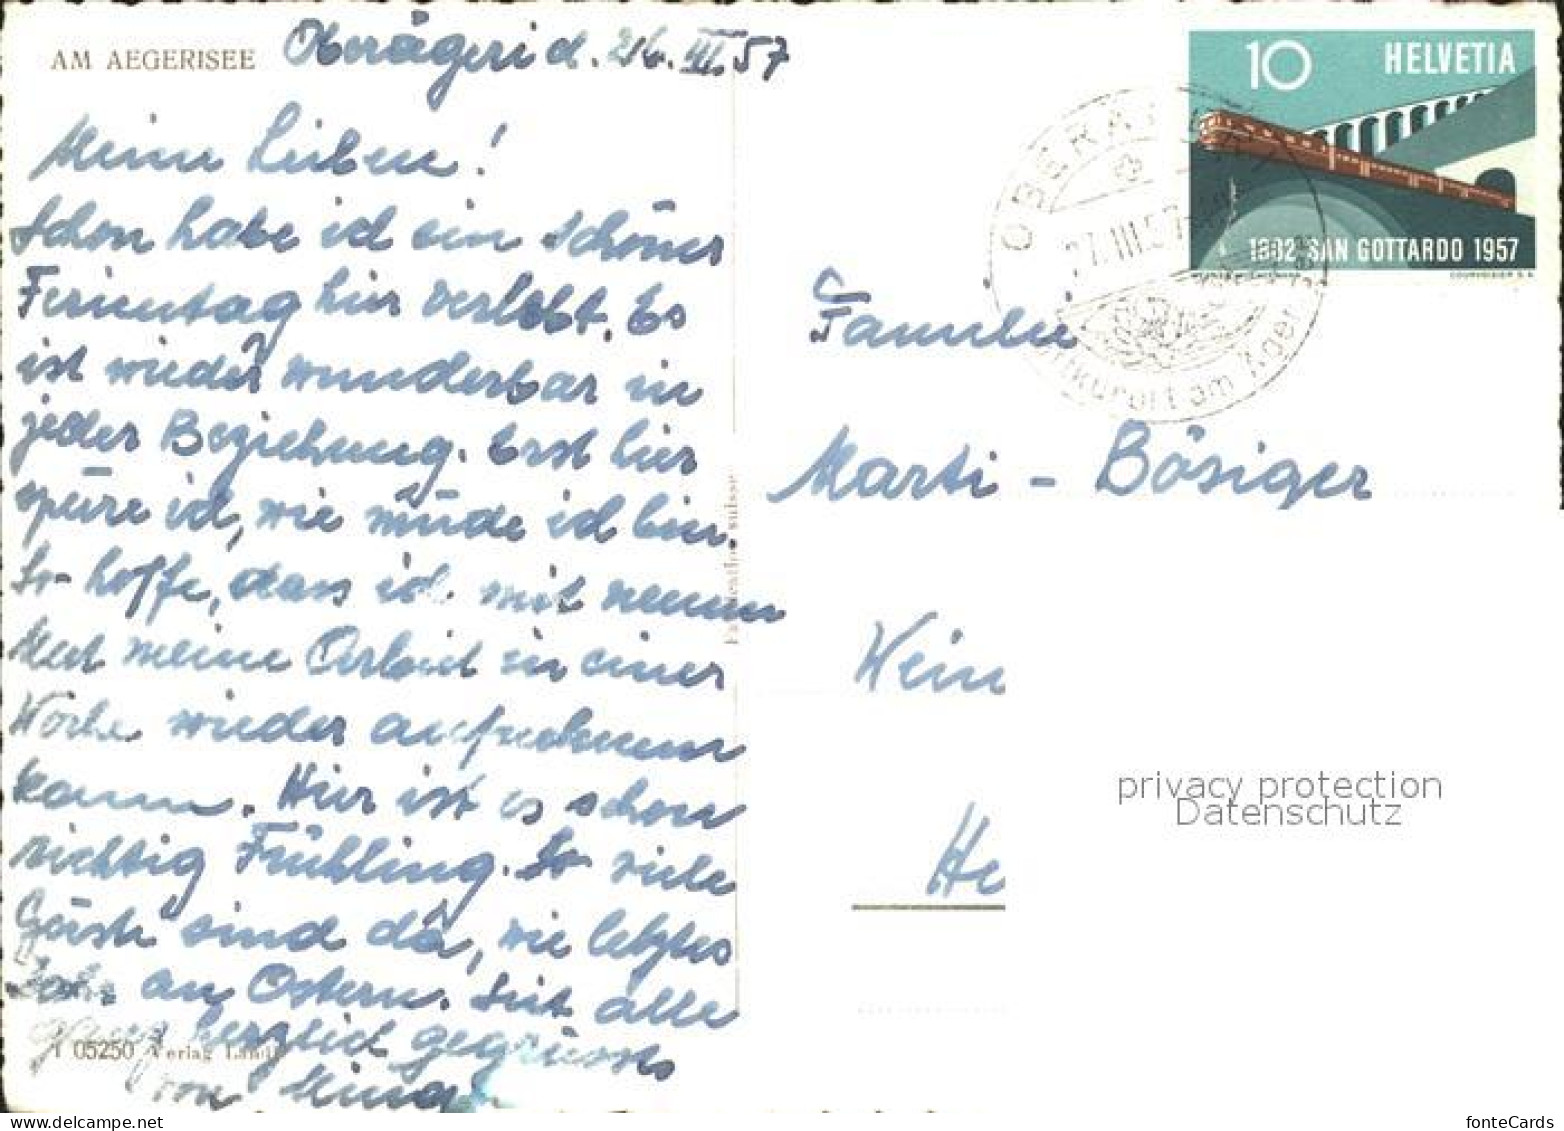 AM AEGERISEE
Oberägeri d. 26. III. 57
Meine Lieben!
Schon habe ich ein schöner
Ferientag hier verlebt. Es
ist wieder wunderbar in
jeder Beziehung. Erst hier
spüre ich, wie müde ich bin.
So hoffe, dass ich mit neuem
Mut meine Arbeit in einer
Woche wieder aufnehmen
kann. Hier ist es schon
richtig Frühling. So viele
Gäste sind da, wie letztes
Jahr an Ostern. Seit alle
herzlich gegrüsst
von
T 05250 Verlag
10 HELVETIA
1882 SAN GOTTARDO 1957
COURVOISIER S.A.
OBERÄGERI
27.III.57
am Ägeri
Familie
Marti - Bösiger
Wein
He
privacy protection
Datenschutz
fonteCards